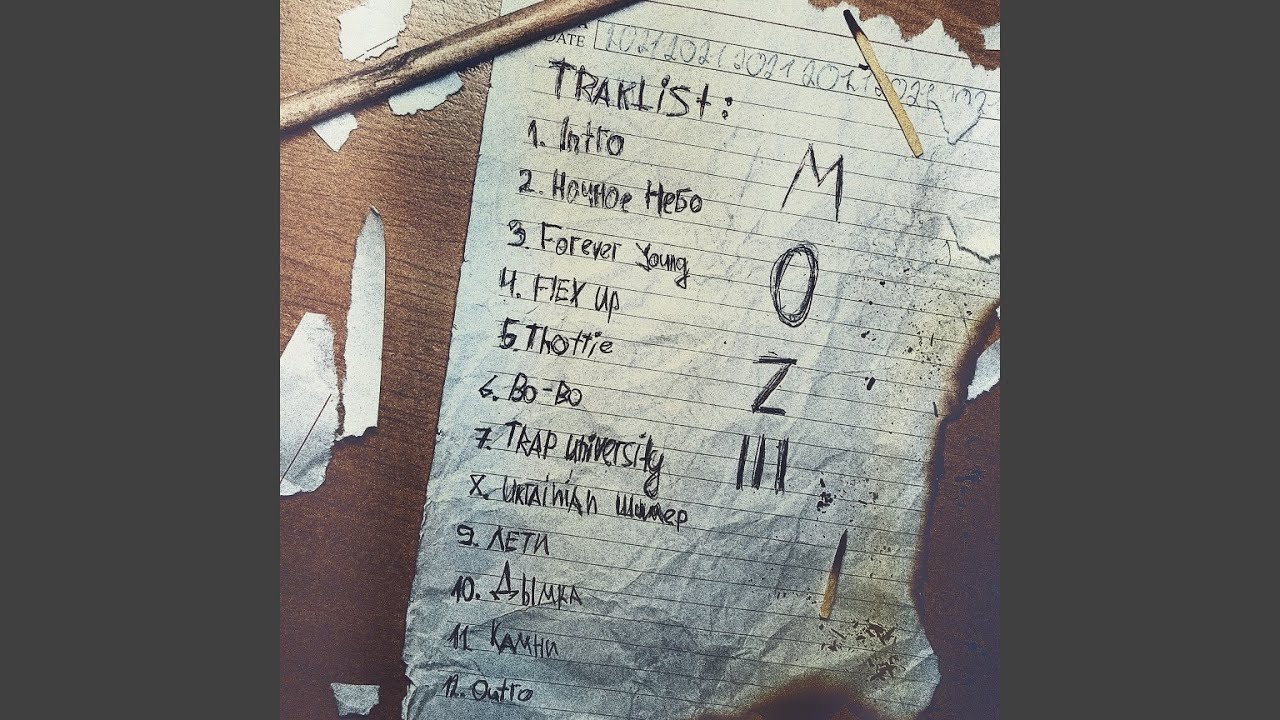 DATE 2021 2021 2021 2021 2022 2021
TRAKList:
1. Intro
2. Ночное Небо
3. Forever Young
4. FlEX Up
5. Thottie
6. Bo-Bo
7. TRAP University
X. UKRAiNiAN Шиммер
9. ЛЕТИ
10. Дымка
11. Камни
12. Outro
M
O
Z
III